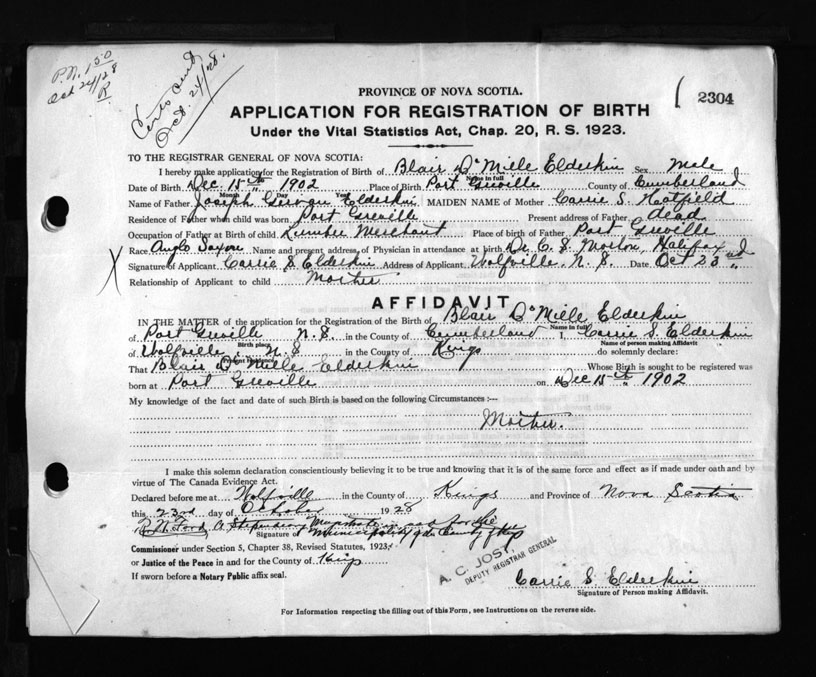 P.N. 150
Oct 24/28
R
Certs sent
Oct. 24/28.
PROVINCE OF NOVA SCOTIA.
2304
APPLICATION FOR REGISTRATION OF BIRTH
Under the Vital Statistics Act, Chap. 20, R. S. 1923.
TO THE REGISTRAR GENERAL OF NOVA SCOTIA:
I hereby make application for the Registration of Birth of Blair D'Mille Elderkin Sex Male
Name in full
Date of Birth Dec 15th 1902 Place of Birth Port Greville County of Cumberland
Month Day Year
Name of Father Joseph Elderkin MAIDEN NAME of Mother Carrie S. Hatfield
Residence of Father when child was born Port Greville Present address of Father Dead
Occupation of Father at Birth of child Lumber Merchant Place of birth of Father Port Greville
Race Anglo Saxon Name and present address of Physician in attendance at birth Dr. C. S. Morton, Halifax
Signature of Applicant Carrie S. Elderkin Address of Applicant Wolfville, N. S. Date Oct 23rd
X Relationship of Applicant to child Mother
AFFIDAVIT
IN THE MATTER of the application for the Registration of the Birth of Blair D'Mille Elderkin
Name in full
of Port Greville N. S. in the County of Cumberland I, Carrie S. Elderkin
Birth place Name of person making Affidavit
of Wolfville N. S in the County of Kings do solemnly declare:
Present Residence
That Blair D'Mille Elderkin Whose Birth is sought to be registered was
born at Port Greville on Dec 15th 1902
My knowledge of the fact and date of such Birth is based on the following Circumstances :—
Mother.
I make this solemn declaration conscientiously believing it to be true and knowing that it is of the same force and effect as if made under oath and by
virtue of The Canada Evidence Act.
Declared before me at Wolfville in the County of Kings and Province of Nova Scotia
this 23rd day of October 1928
R. W. Ford A Stipendiary Magistrate in and for the
Signature of Municipality of the County of Kings
Commissioner under Section 5, Chapter 38, Revised Statutes, 1923,
or Justice of the Peace in and for the County of Kings
If sworn before a Notary Public affix seal.
A. C. JOST,
DEPUTY REGISTRAR GENERAL
Carrie S. Elderkin
Signature of Person making Affidavit.
For Information respecting the filling out of this Form, see Instructions on the reverse side.